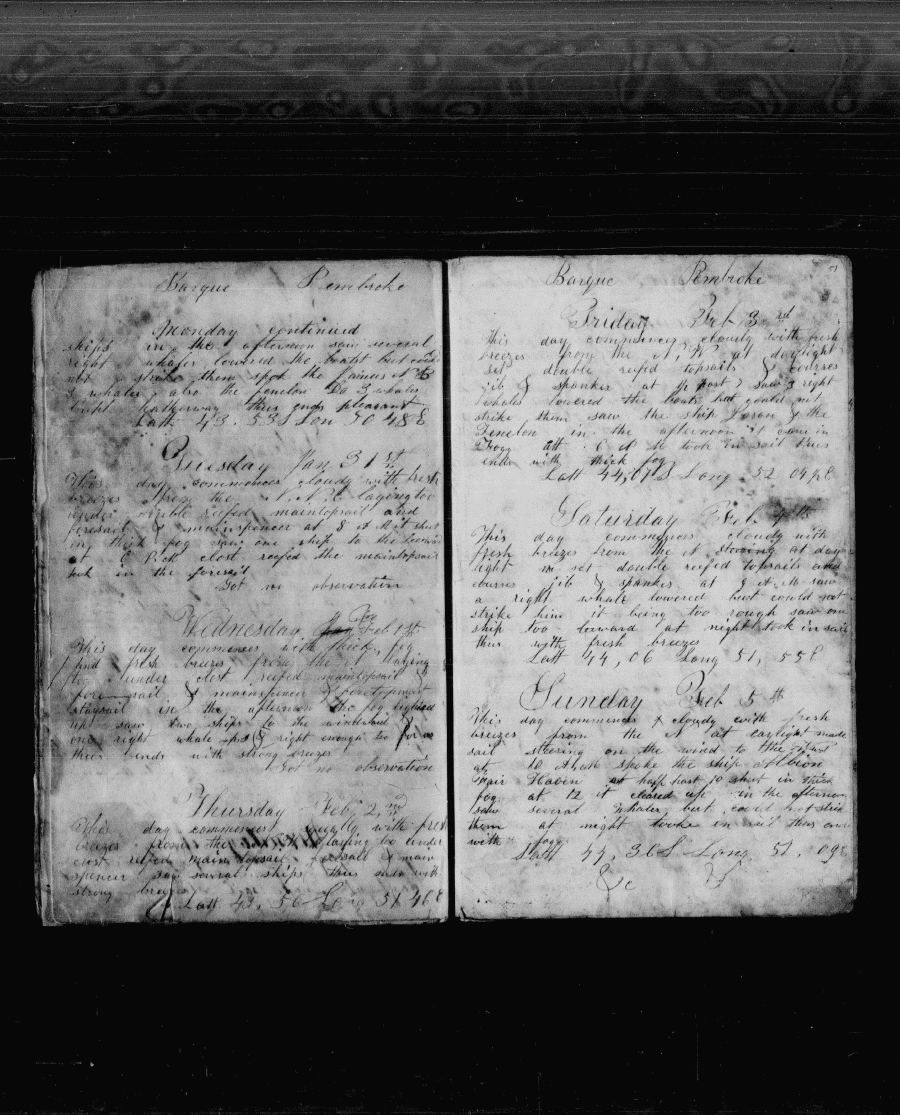 Barque Pembroke
Monday continued
ships in the afternoon saw several
right whales lowered the boats but could
not strike them spok the
3 whales also the Fenelon Do 3 whales
thus ends pleasant
Latt 43.53 S Lon 50 48 E
Tuesday Jan 31st
This day commences cloudy with fresh
breezes from the N.N.E laying too
under double reefed maintopsail and
foresail & mainspencer at 8 A M it shut
in thick fog saw one ship to the
at 6 P.M close reefed the maintopsail
took in the foresail
Got no observation
Wednesday Feb 1st
This day commences with thick fog
and fresh breezes from the N laying
too under clost reefed maintopsail
foresail & mainspencer & foretopmast
staysail in the afternoon the fog lighted
up saw two ships to the windward &
one right whale & right enough too for us
thus ends with strong breezes
Got no observation
Thursday Feb, 2nd
This day commences with fresh
breezes from the laying too under
clost reefed maintopsail foresail & main
spencer saw several ships thus ends with
strong breezes
Latt 43, 56 Long 51 46 E
Barque Pembroke
Friday Feb 3rd
This day commences cloudy with fresh
breezes from the N, W at daylight
set double reefed topsails & courses
jib & spanker at saw 3 right
whales lowered the boats but could not
strike them saw the ship & the
Fenelon in the afternoon it came in
Fogg att 6 took in sail thus
ends with thick fog
Latt 44,07 S Long 52 04 E
Saturday Feb 4th
This day commences cloudy with
fresh breezes from the N steering at day
light set double reefed topsails and
courses jib & spanker at A.M saw
a right whale lowered but could not
strike him it being too rough saw one
ship too leeward at night took in sail
thus with fresh breezes
Latt 44, 06 Long 51, 55 E
Sunday Feb 5th
This day commences & cloudy with fresh
breezes from the N at daylight made
sail steering on the wind to the
at 10 A M spoke the ship Albion
Fair Haven at half past 10 shut in thick
fog at 12 it cleared up in the afternoon
saw several whales but could not strike
them at night tooke in sail thus ends
with fogg
Latt 44, 36 S Long 51, 09 E
&c &